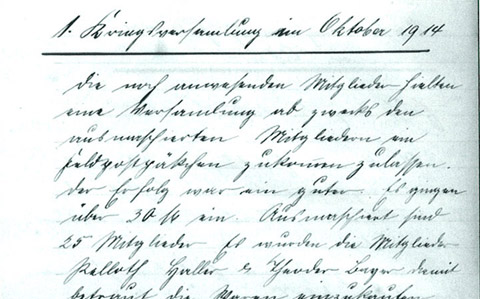 1. Kriegsversamlung im Oktober 1914
Die noch anwesenden Mitglieder hielten
eine Versamlung ab zwecks den
ausmaschierten Mitgliedern ein
Feldpostpäkchen zukomen zulassen.
Der Erfolg war ein guter. Es gingen
über 30 M ein. Ausmaschiert sind
25 Mitglieder. Es wurden die Mitglieder
Haller & Theodor Bayer damit
betraut die Waren einzukaufen